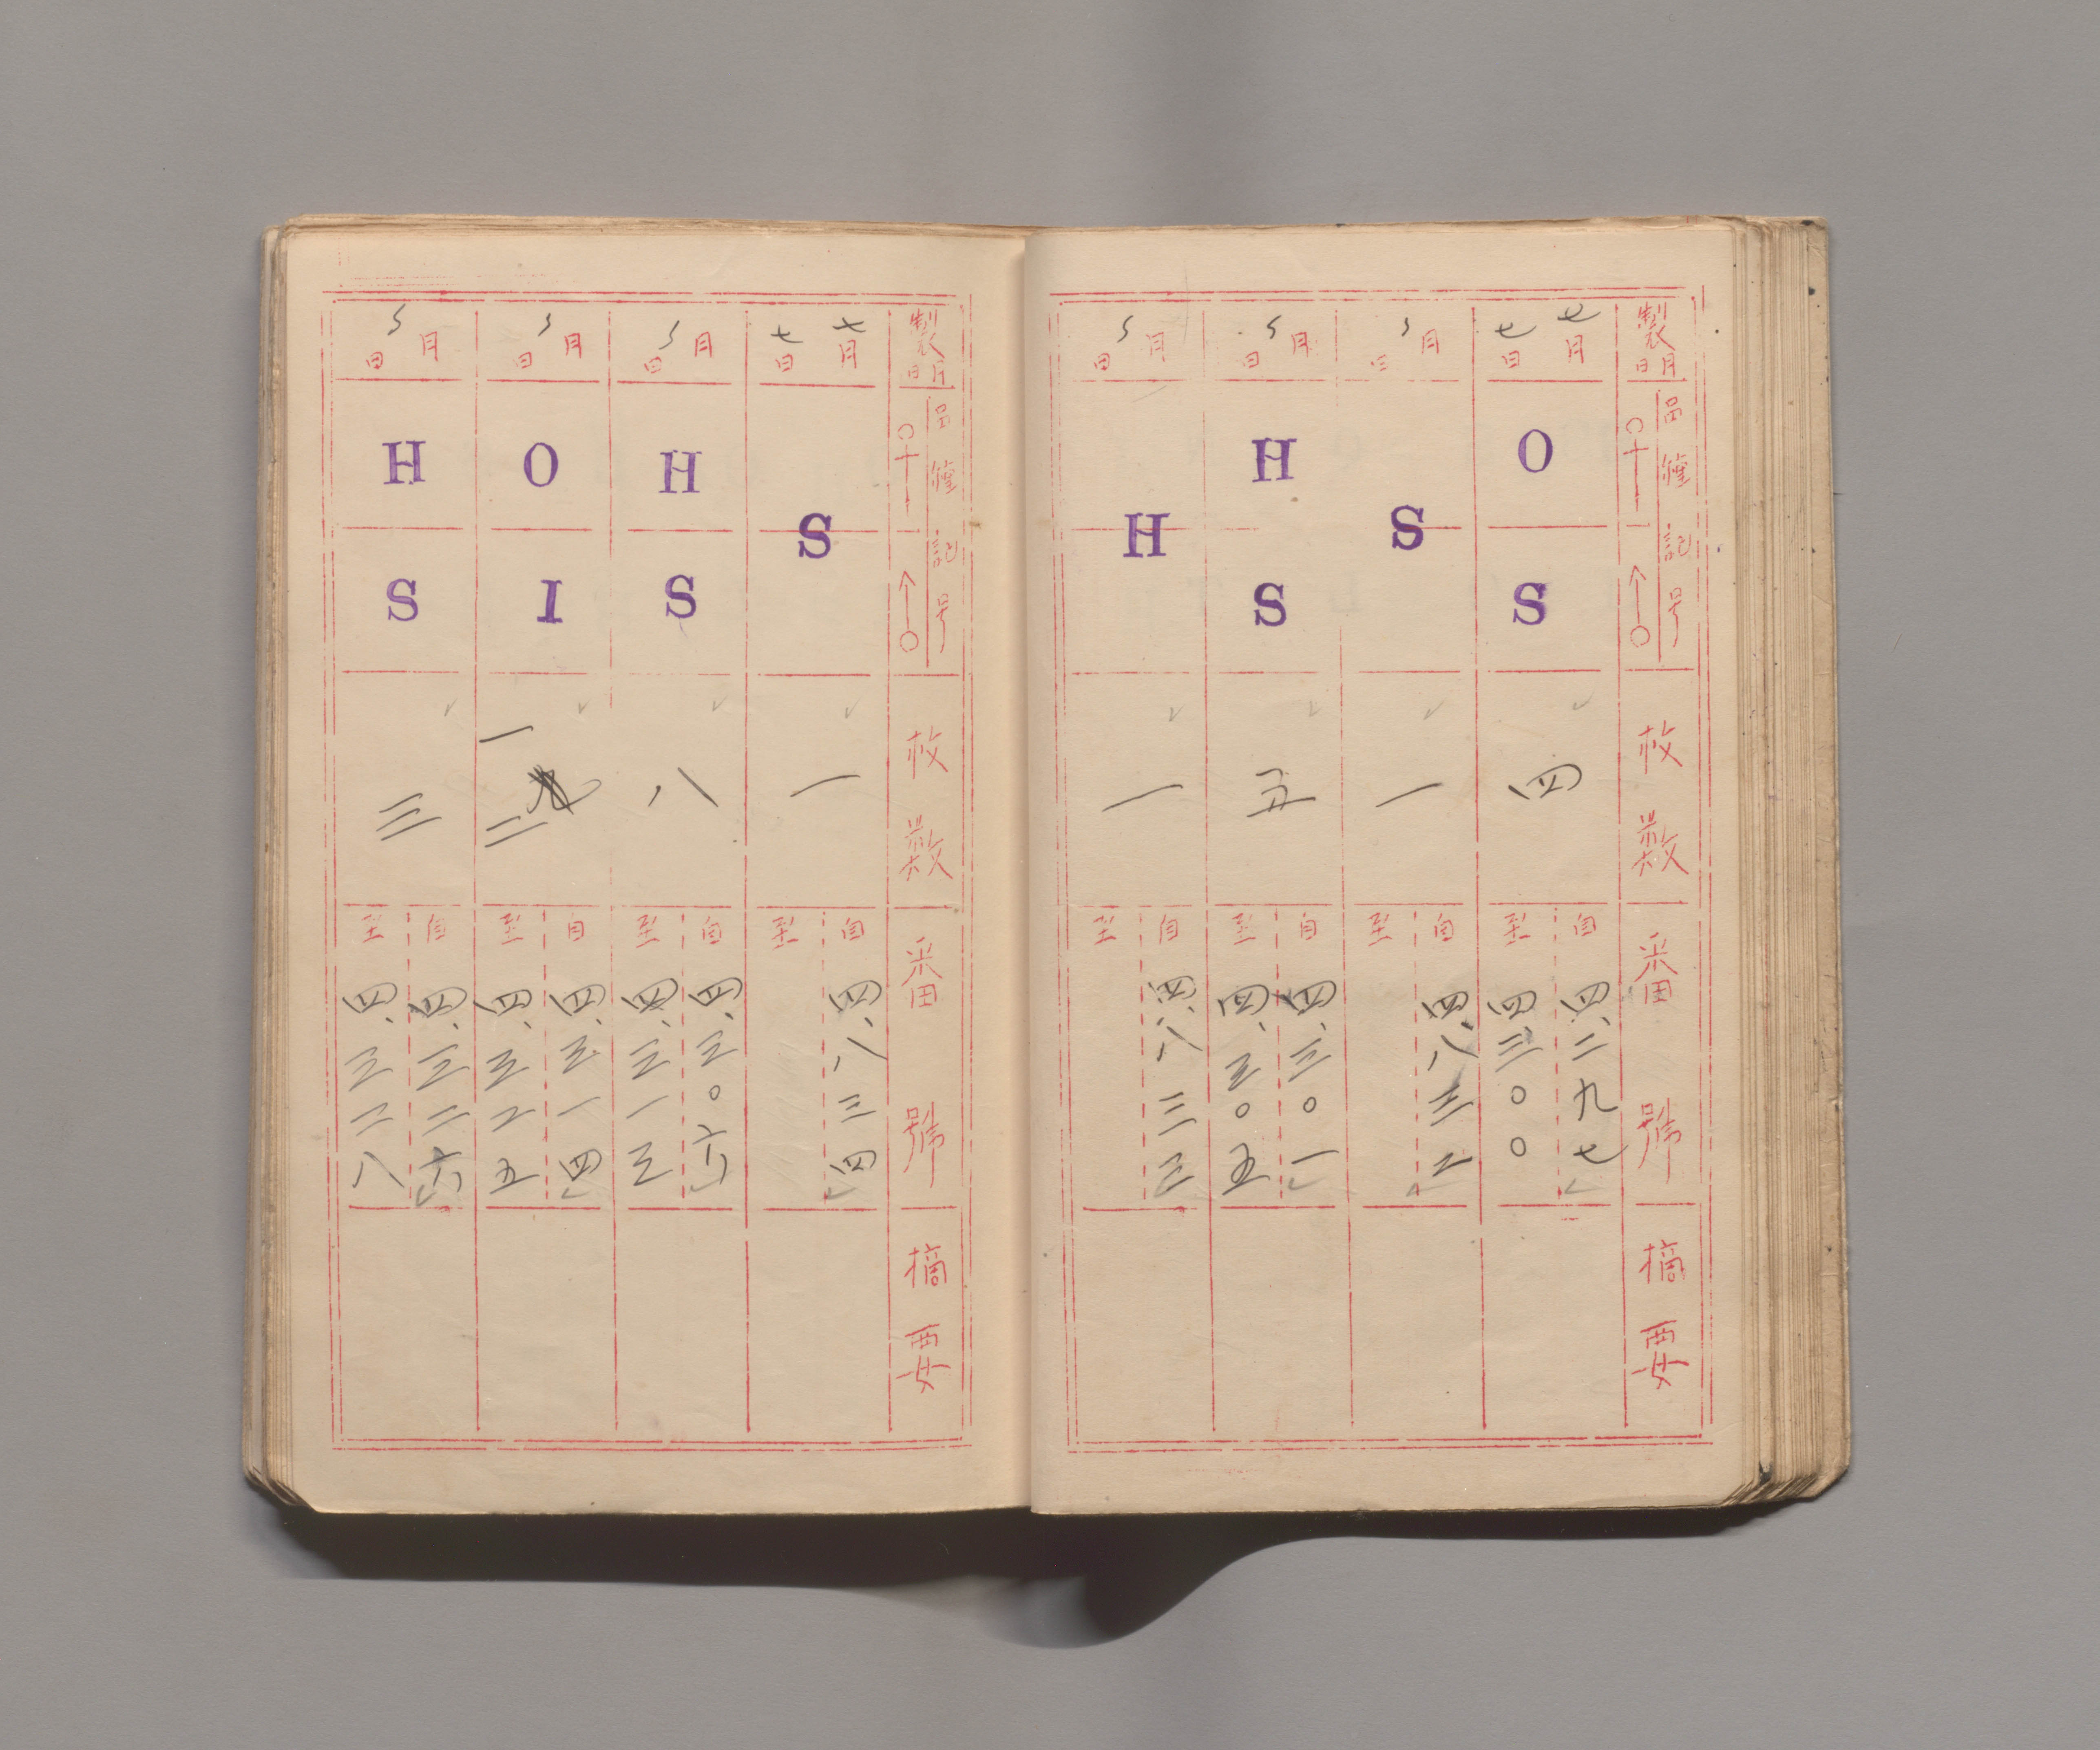 製月日
品種記号
枚数
番號
摘要
七月七日
O
S
四
自 四、二九七
至 四、三〇〇
〃月日
S
一
自 四、八三二
至
〃月日
H
S
五
自 四、三〇一
至 四、三〇五
〃月日
H
一
自 四、八三三
至
製月日
品種記号
枚数
番號
摘要
七月七日
S
一
自 四、八三四
至
〃月日
H
S
八
自 四、三〇六
至 四、三一三
〃月日
O
I
一二
自 四、三一四
至 四、三二五
〃月日
H
S
三
自 四、三二六
至 四、三二八